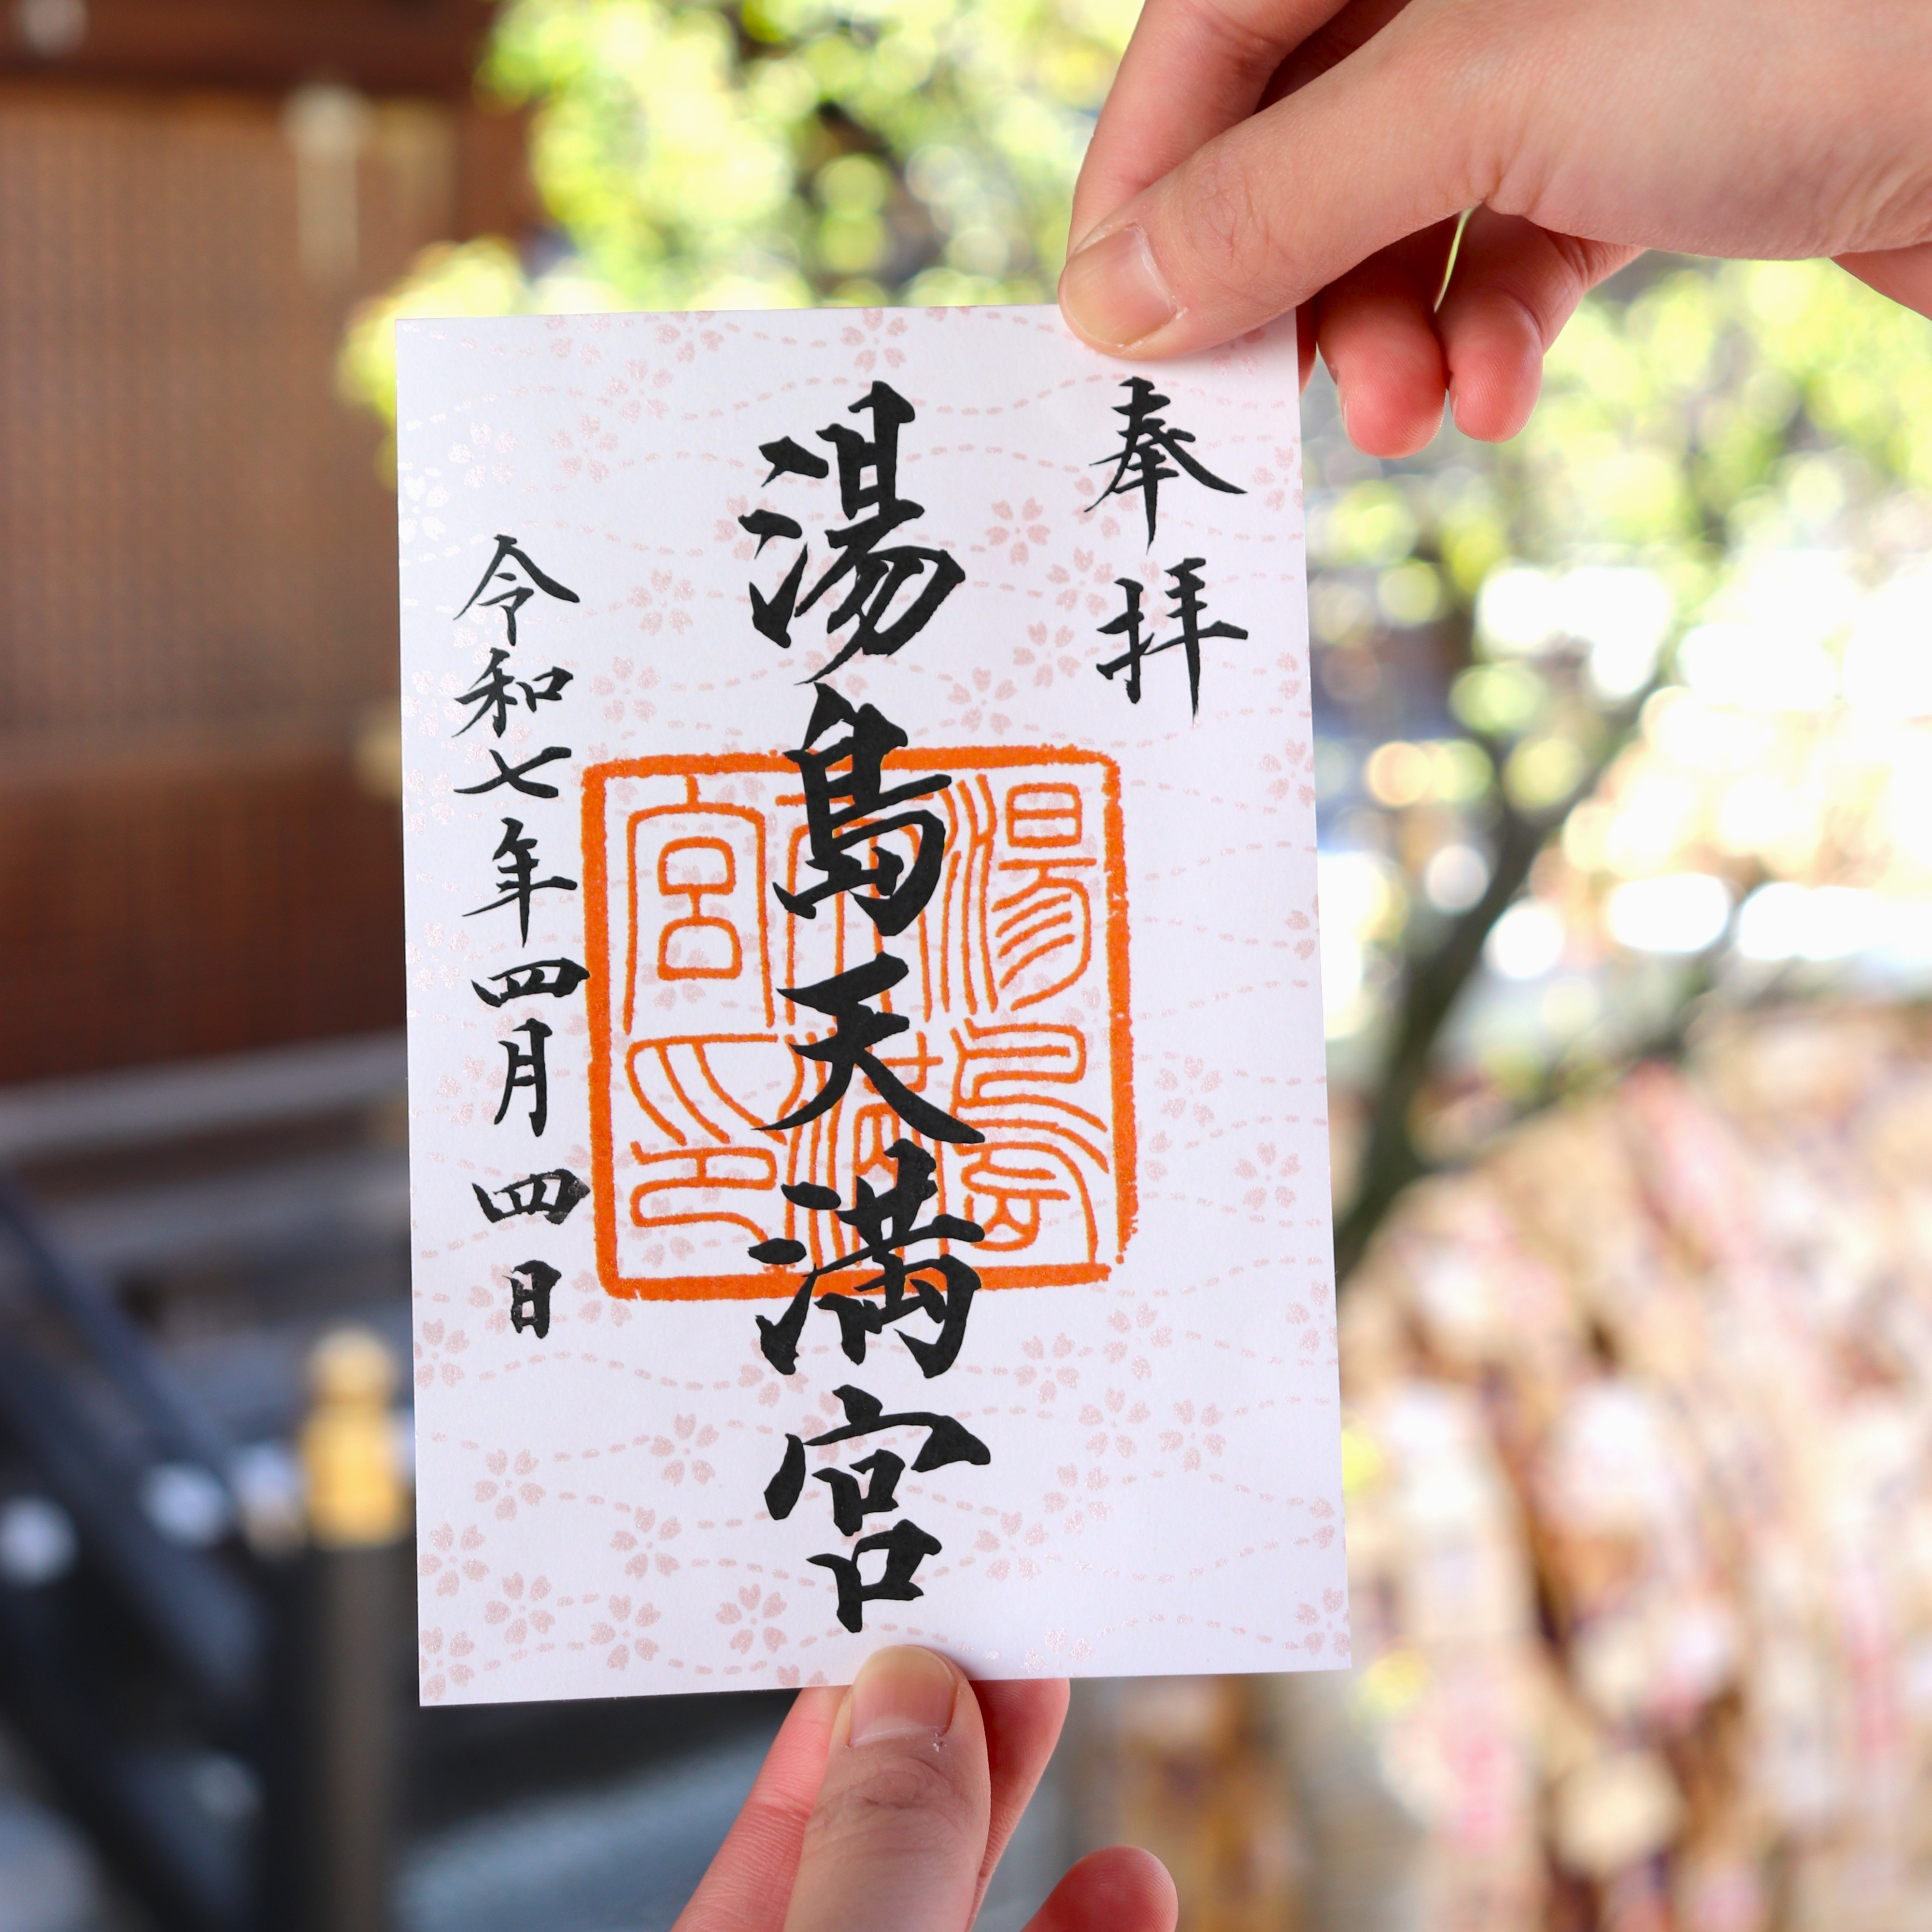 奉拝
湯島天満宮
湯島天満宮印
令和七年四月四日